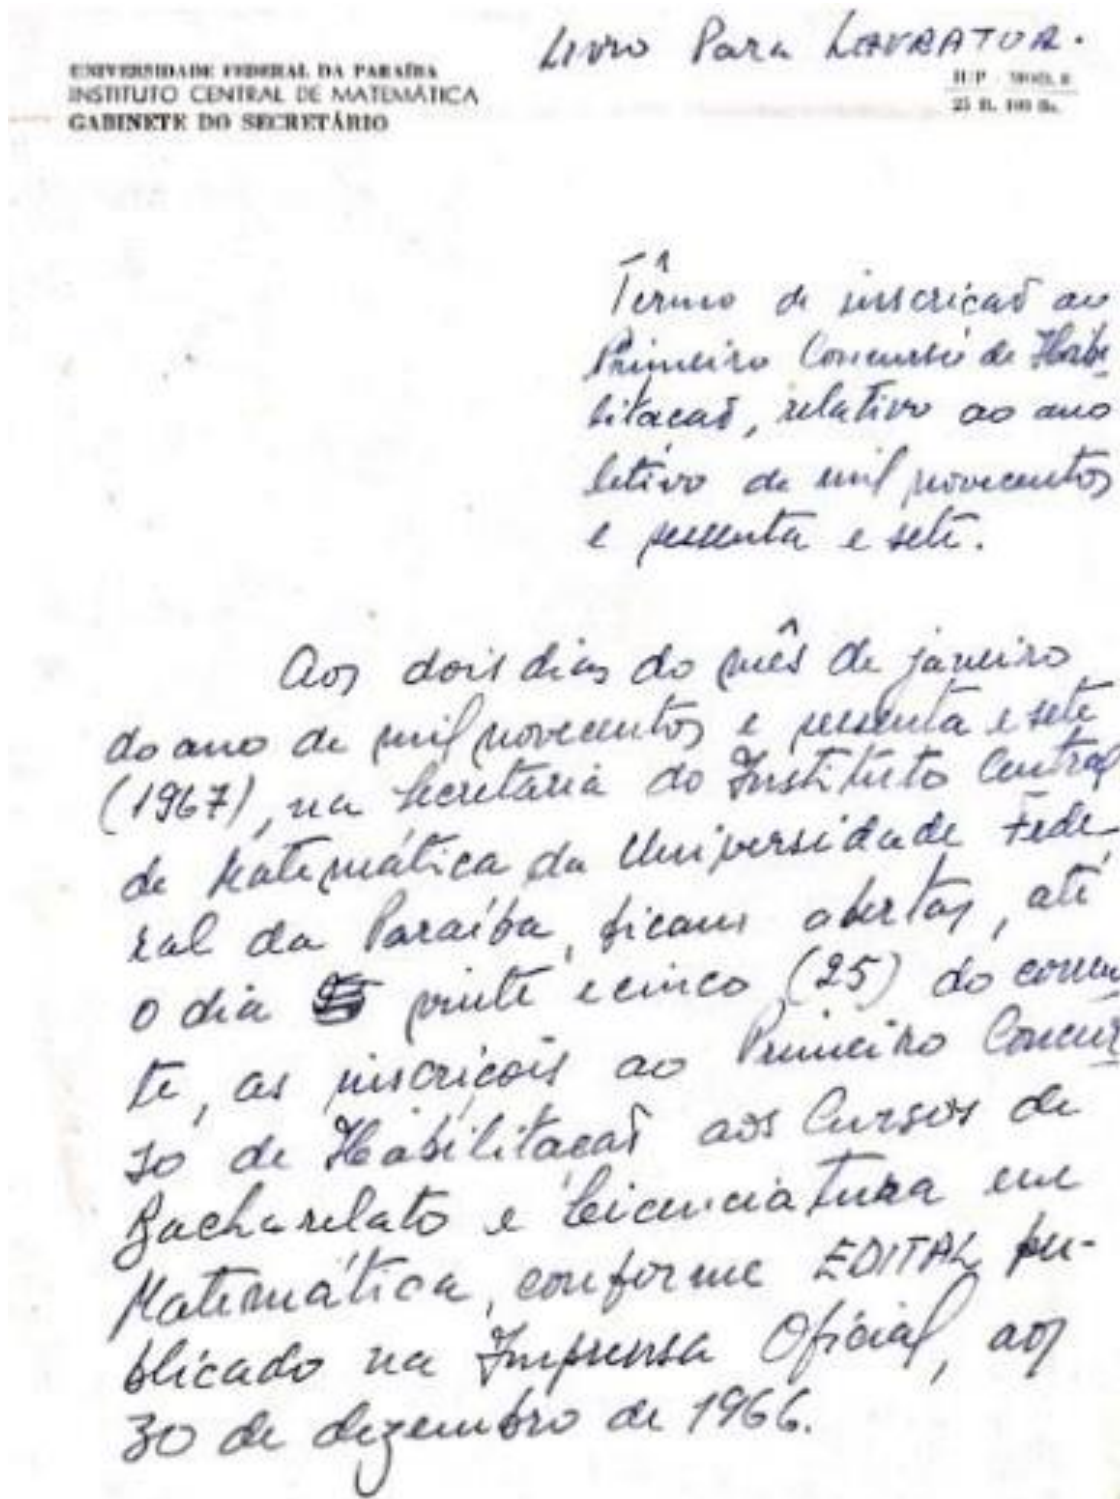 Livro Para LAVRATUR.
UNIVERSIDADE FEDERAL DA PARAÍBA
INSTITUTO CENTRAL DE MATEMÁTICA
GABINETE DO SECRETÁRIO
25 B. 100 fls.
Têrmo de inscrição ao
Primeiro Concurso de Habi
litação, relativo ao ano
letivo de mil novecentos
e sessenta e sete.
Aos dois dias do mês de janeiro
do ano de mil novecentos e sessenta e sete
(1967), na Secretaria do Instituto Central
de Matemática da Universidade Fede
ral da Paraíba, ficam abertas, até
o dia vinte e cinco (25) do corren
te, as inscriçois ao Primeiro Concur
so de Habilitação aos Cursos de
Bacharelato e Licenciatura em
Matemática, conforme EDITAL pu-
blicado na Imprensa Oficial, aos
30 de dezembro de 1966.